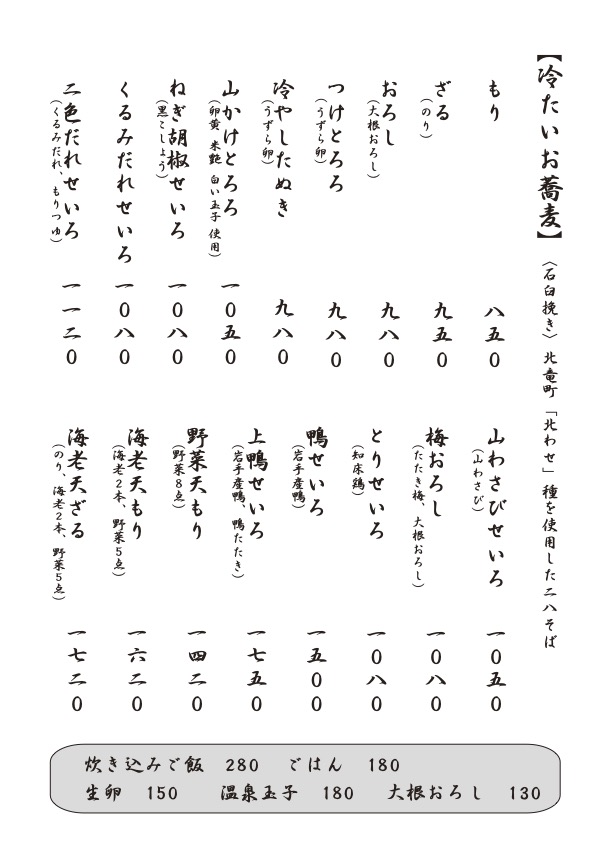 【冷たいお蕎麦】 〈石臼挽き〉北竜町「北わせ」種を使用した二八そば
もり 八五〇
ざる(のり) 九五〇
おろし(大根おろし) 九八〇
つけとろろ(うずら卵) 九八〇
冷やしたぬき(うずら卵) 九八〇
山かけとろろ(卵黄 米艶 白い玉子 使用) 一〇五〇
ねぎ胡椒せいろ(黒こしょう) 一〇八〇
くるみだれせいろ 一〇八〇
二色だれせいろ(くるみだれ、もりつゆ) 一一二〇
山わさびせいろ(山わさび) 一〇五〇
梅おろし(たたき梅、大根おろし) 一〇八〇
とりせいろ(知床鶏) 一〇八〇
鴨せいろ(岩手産鴨) 一五〇〇
上鴨せいろ(岩手産鴨、鴨たたき) 一七五〇
野菜天もり(野菜8点) 一四二〇
海老天もり(海老2本、野菜5点) 一六二〇
海老天ざる(のり、海老2本、野菜5点) 一七二〇
炊き込みご飯 280 ごはん 180
生卵 150 温泉玉子 180 大根おろし 130